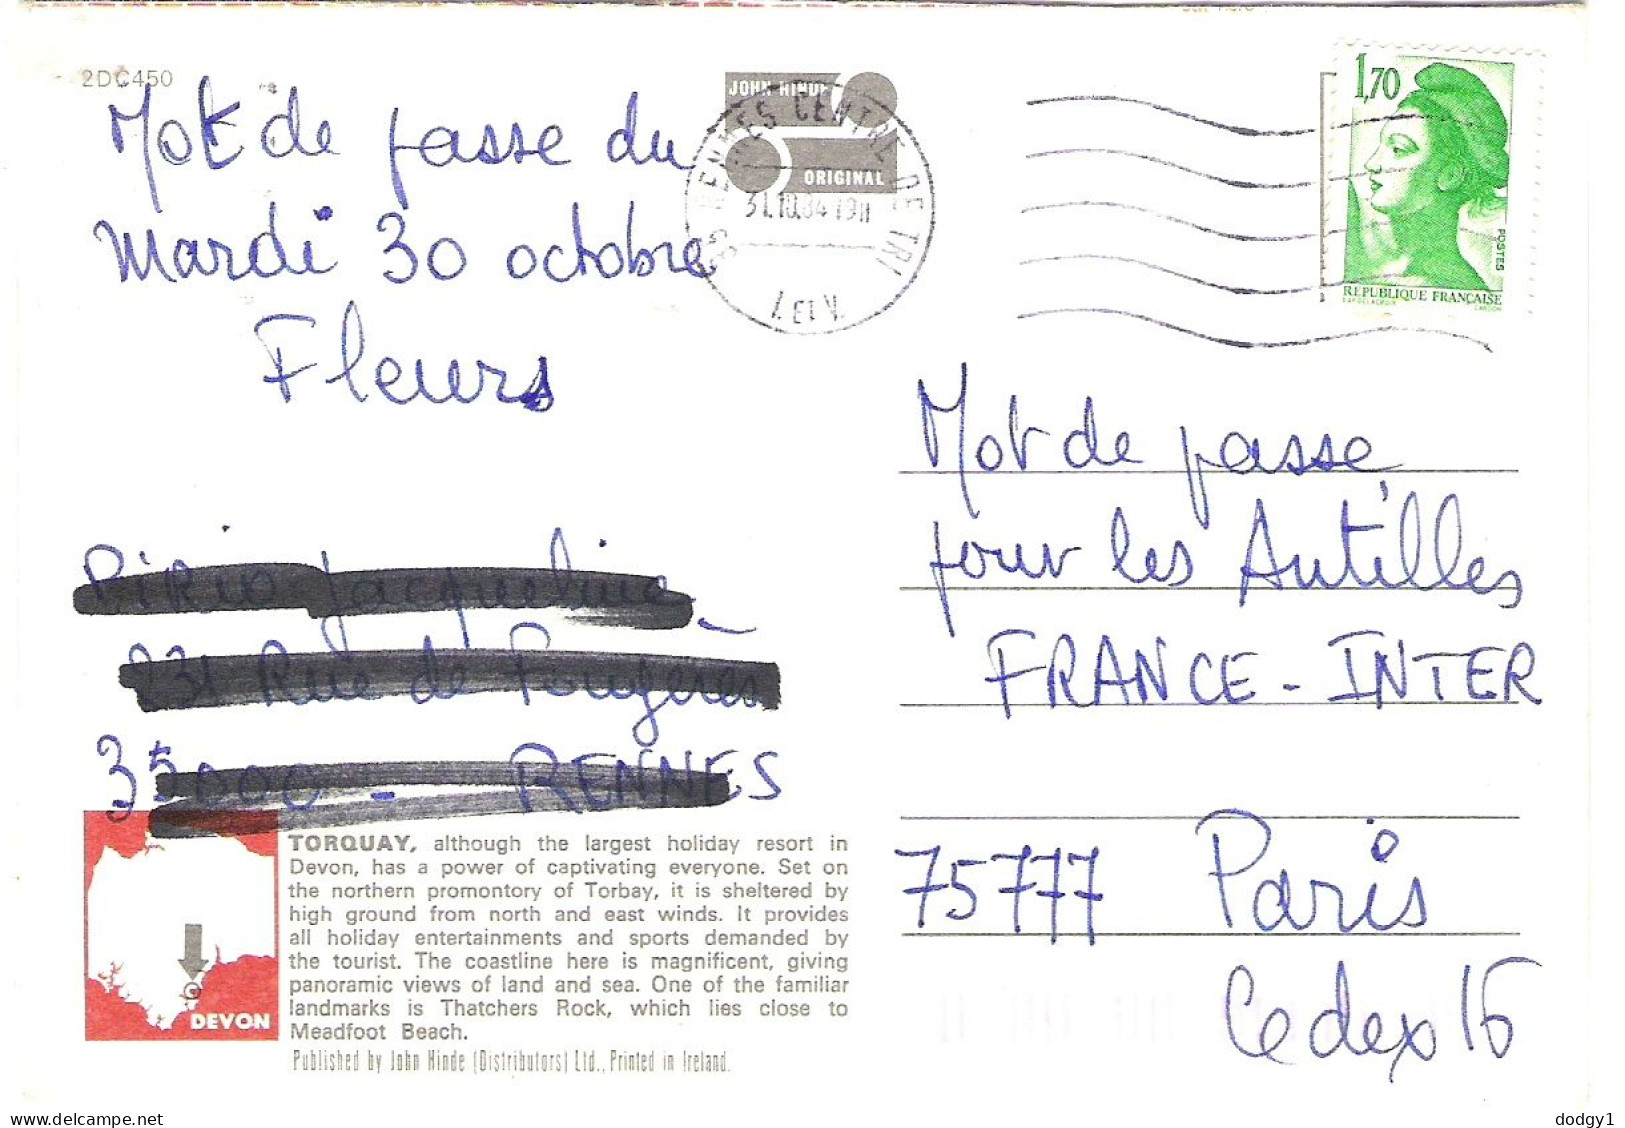 2DC450
JOHN HINDE
ORIGINAL
RENNES CENTRE DE TRI
31.10.84 19H
I. ET V.
1,70
POSTES
REPUBLIQUE FRANÇAISE
Mot de passe du
Mardi 30 octobre
Fleurs
Mot de passe
pour les Antilles
FRANCE-INTER
75777 Paris
Cedex 16
35000 - RENNES
TORQUAY, although the largest holiday resort in
Devon, has a power of captivating everyone. Set on
the northern promontory of Torbay, it is sheltered by
high ground from north and east winds. It provides
all holiday entertainments and sports demanded by
the tourist. The coastline here is magnificent, giving
panoramic views of land and sea. One of the familiar
landmarks is Thatchers Rock, which lies close to
Meadfoot Beach.
DEVON
Published by John Hinde (Distributors) Ltd., Printed in Ireland.
delcampe.net
dodgy1